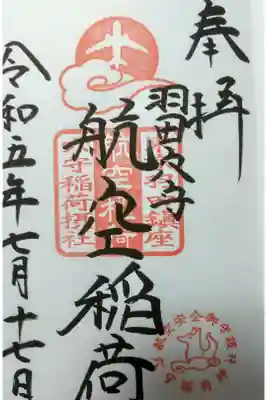 奉拝
羽田穴守
航空稲荷
令和五年七月十七日
航空稲荷
穴守稲荷摂社